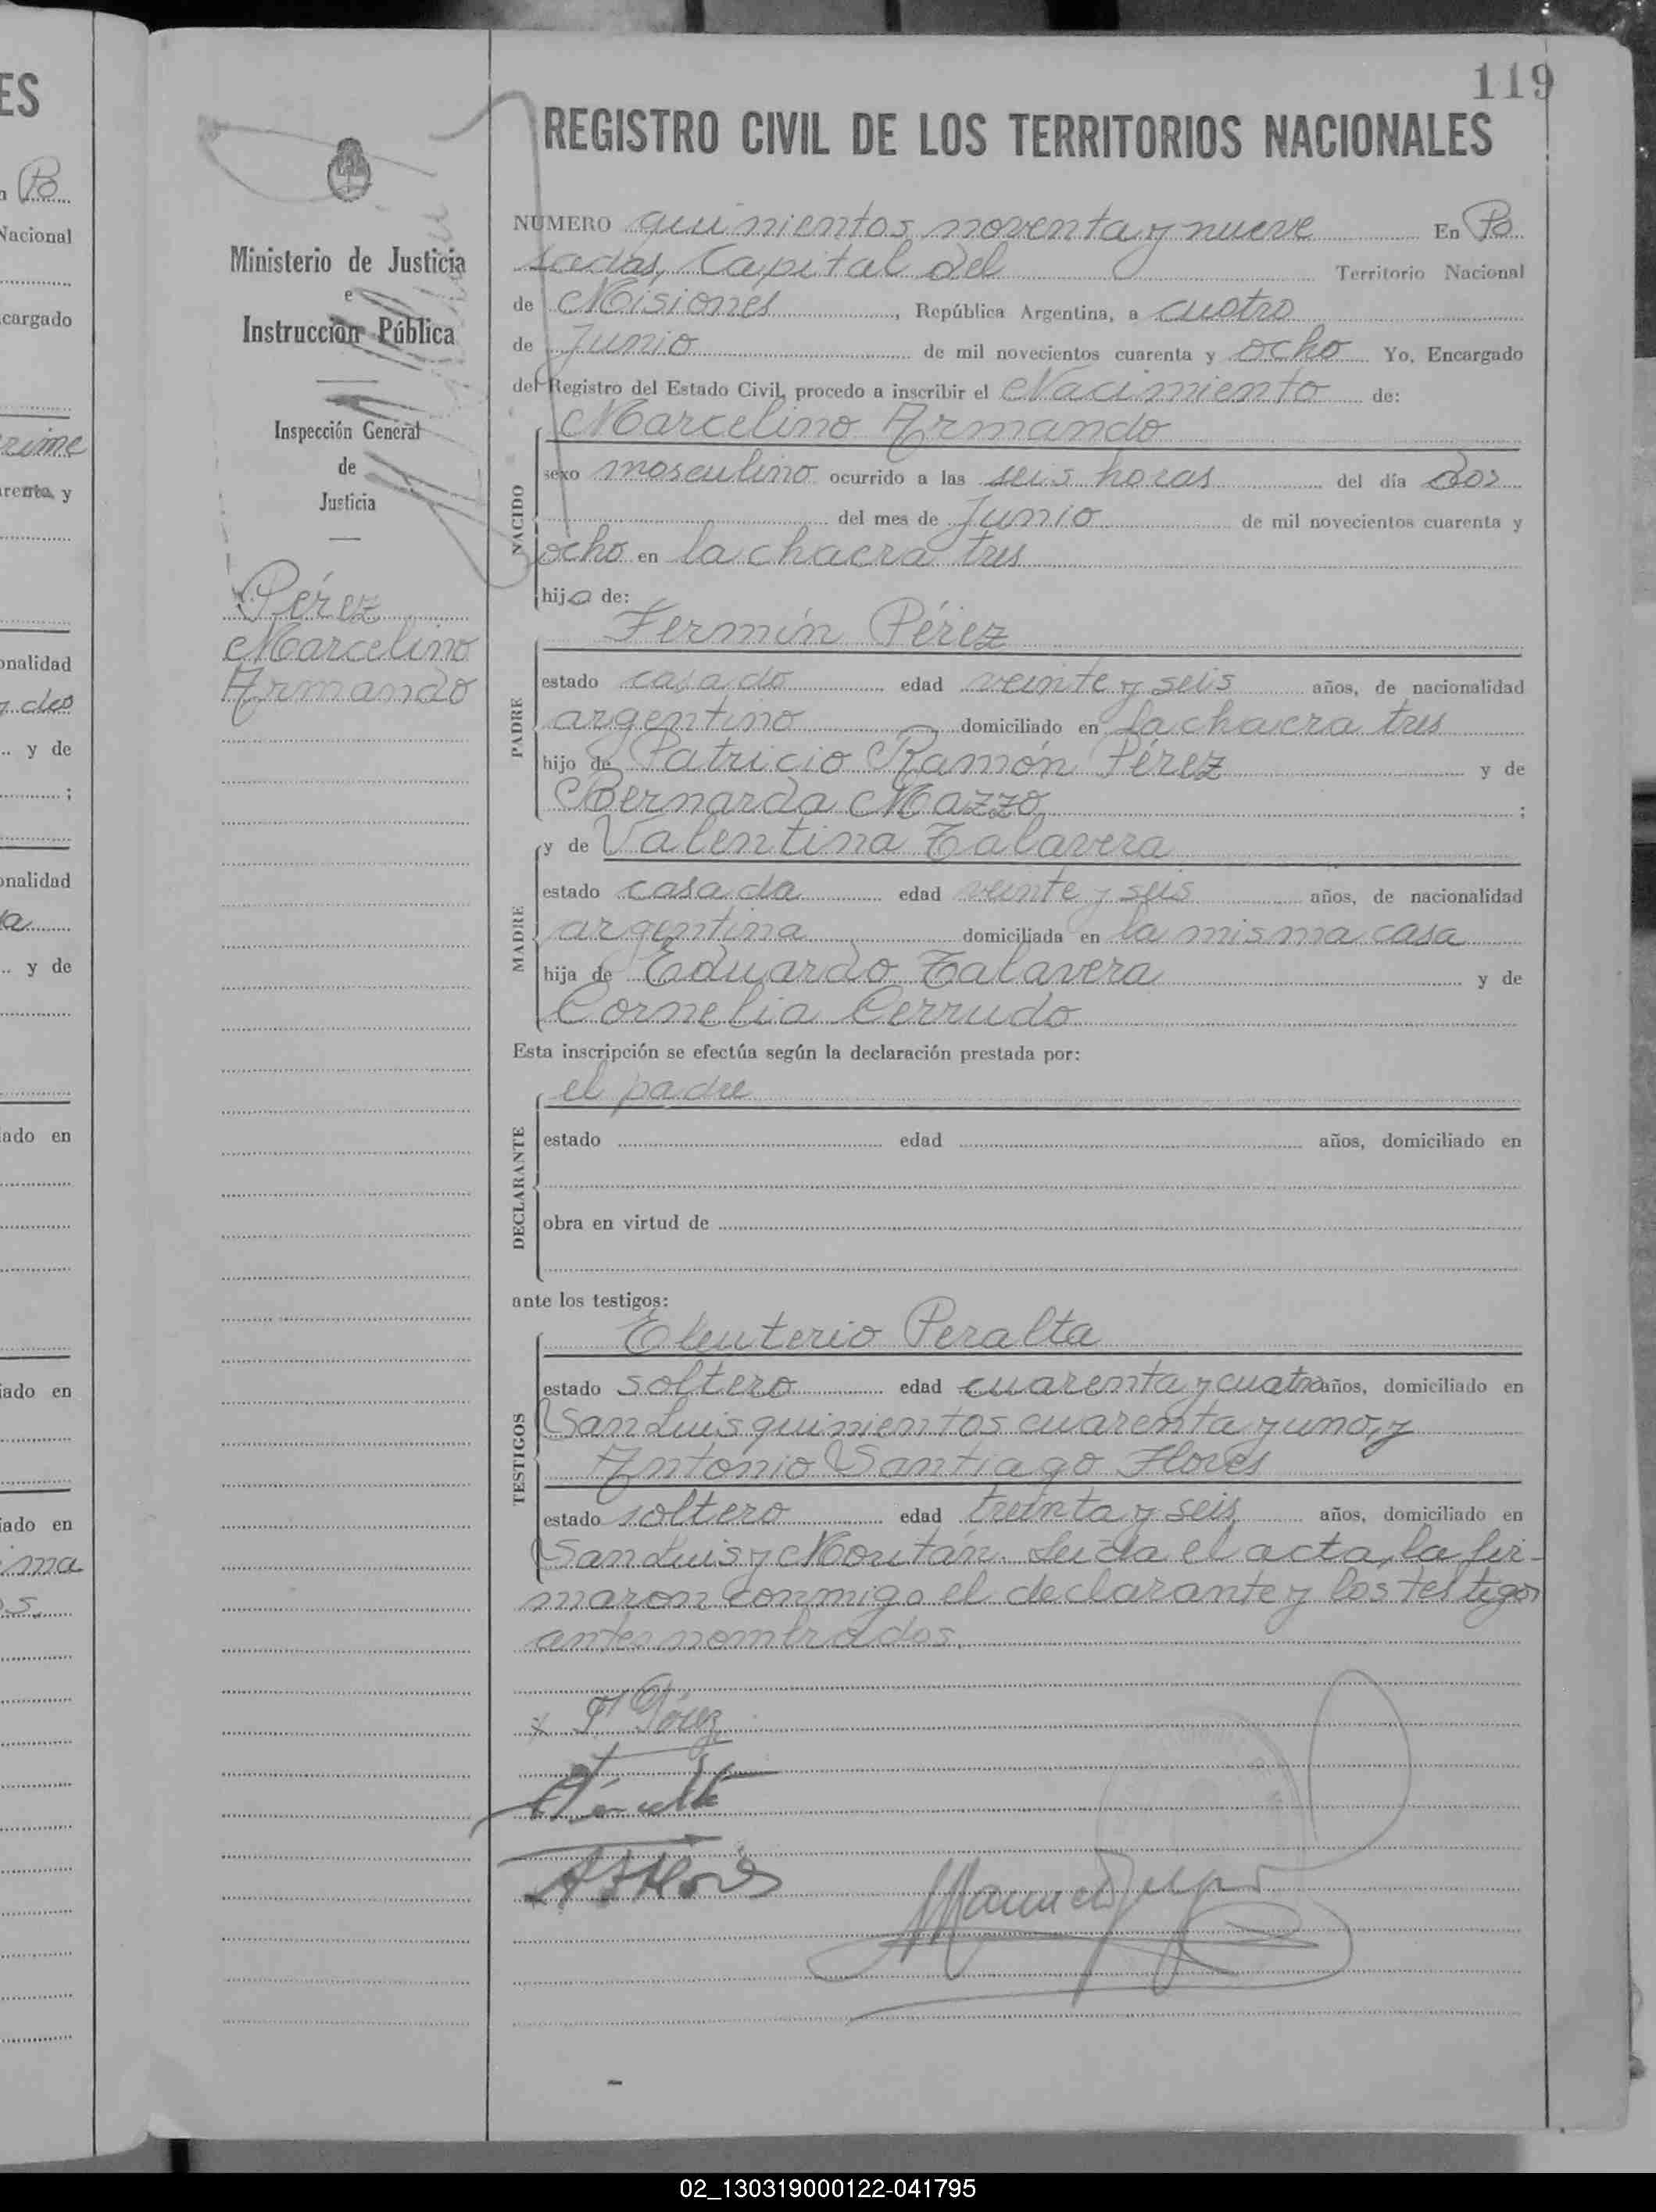 119
REGISTRO CIVIL DE LOS TERRITORIOS NACIONALES
Ministerio de Justicia
e
Instrucción Pública
Inspección General
de
Justicia
Pérez
Marcelino
Armando
NUMERO quinientos noventa y nueve En Po
sadas, Capital del Territorio Nacional
de Misiones, República Argentina, a cuatro
de Junio de mil novecientos cuarenta y ocho Yo, Encargado
del Registro del Estado Civil, procedo a inscribir el Nacimiento de:
NACIDO
Marcelino Armando
sexo masculino ocurrido a las seis horas del día dos
del mes de Junio de mil novecientos cuarenta y
ocho en la chacra tres
hijo de:
PADRE
Fermín Pérez
estado casado edad veinte y seis años, de nacionalidad
argentino domiciliado en la chacra tres
hijo de Patricio Ramón Pérez y de
Bernarda Mazzo;
MADRE
y de Valentina Talavera
estado casada edad veinte y seis años, de nacionalidad
argentina domiciliada en la misma casa
hija de Eduardo Talavera y de
Cornelia Cerrudo
Esta inscripción se efectúa según la declaración prestada por:
DECLARANTE
el padre
estado edad años, domiciliado en
obra en virtud de
ante los testigos:
TESTIGOS
Eleuterio Peralta
estado soltero edad cuarenta y cuatro años, domiciliado en
San Luis quinientos cuarenta y uno, y
Antonio Santiago Flores
estado soltero edad treinta y seis años, domiciliado en
San Luis y Moután. Leida el acta, la fir-
maron conmigo el declarante y los testigos
antes nombrados.
x F Pérez
ES
Po
Nacional
cargado
onalidad
y de
;
onalidad
y de
ado en
iado en
iado en
02_130319000122-041795